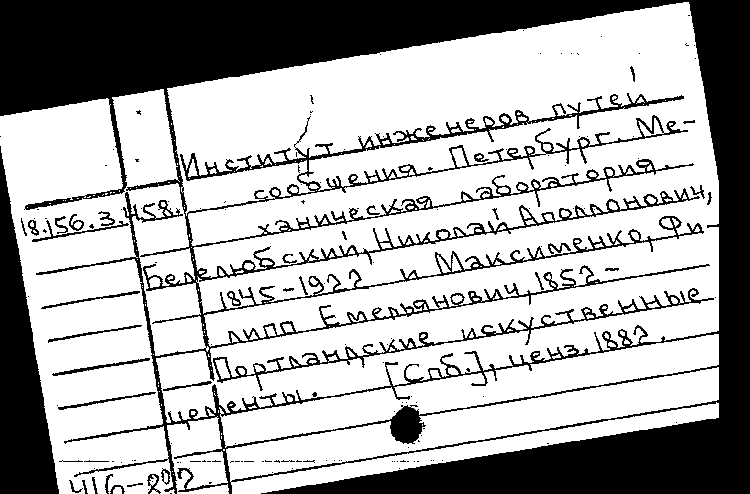 Институт инженеров путей
сообщения. Петербург. Ме-
18.156.3.458.
ханическая лаборатория.
Белелюбский, Николай Аполлонович,
1845-1922 и Максименко, Фи-
липп Емельянович, 1852-
Портландские искуственные
цементы. [Спб.], ценз. 1882.